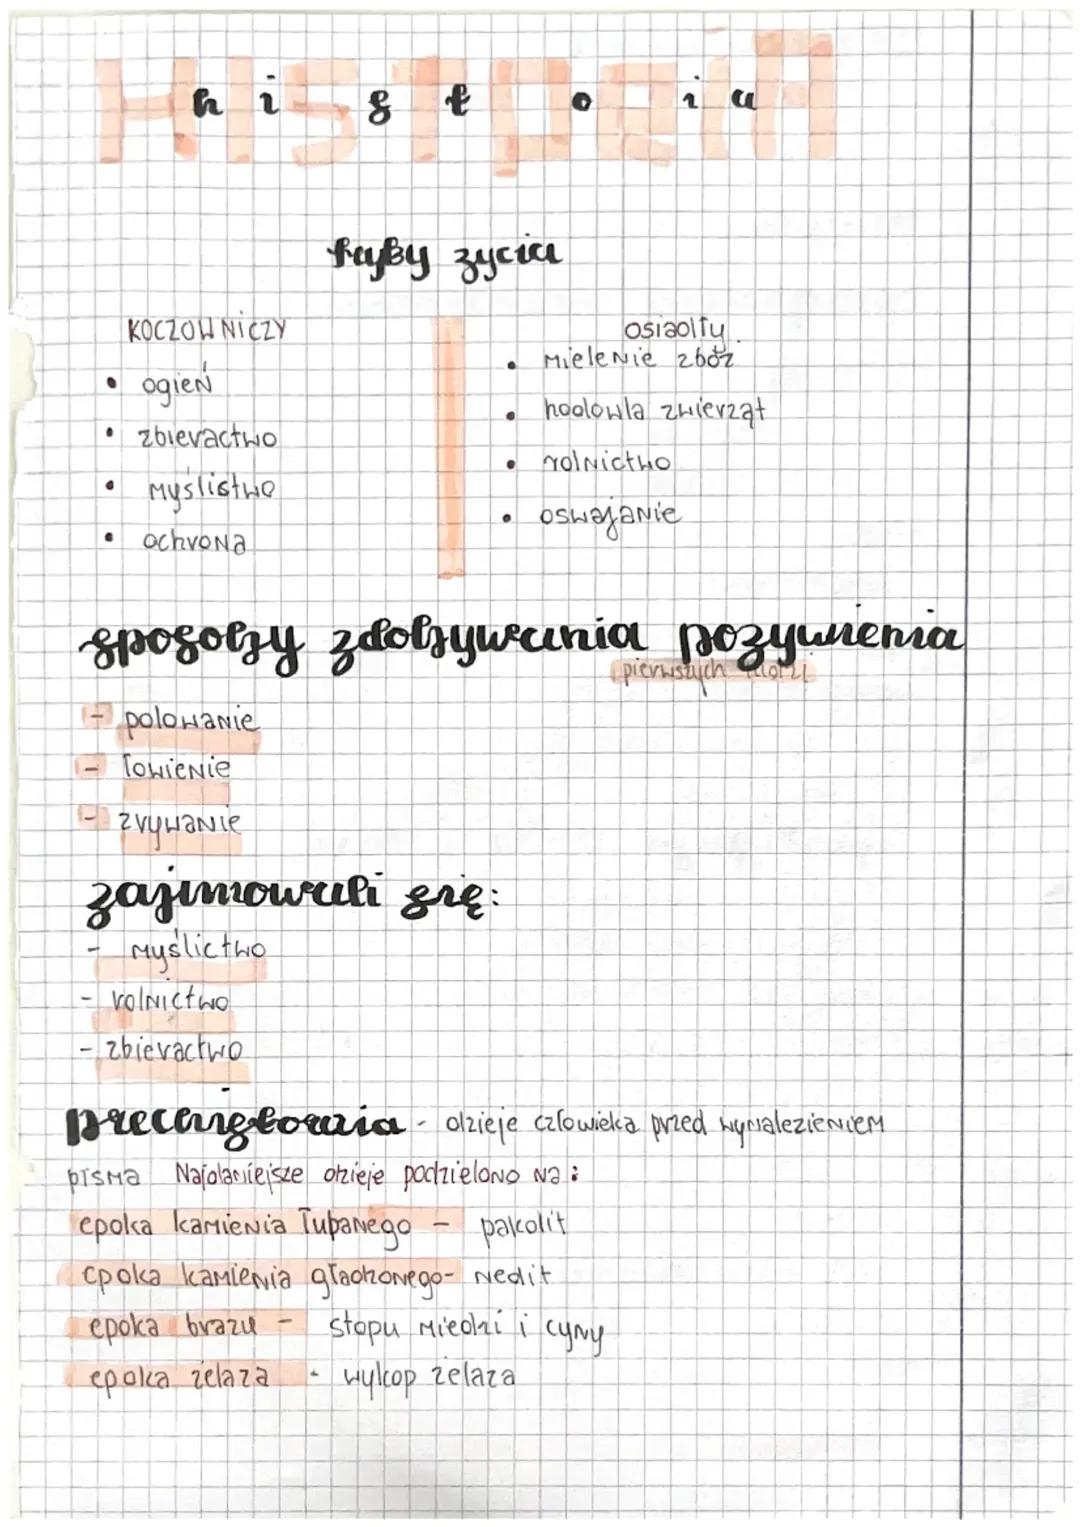 HISTORIA
h i s t o r i a
tryby zycia
KOCZOWNICZY
• ogień
• zbieractwo
• myślistwo
• ochrona
osiadły
• mielenie zbóż
• hodowla zwierząt
• rolnictwo
• oswajanie
sposoby zdobywania pozywienia
pierwszych ludzi
- polowanie
- łowienie
- zrywanie
zajmowali się:
- myślictwo
- rolnictwo
- zbieractwo
- dzieje człowieka przed wynalezieniem
pisma Najdawniejsze dzieje podzielono na:
epoka kamienia łupanego - paleolit
epoka kamienia gładzonego- neolit
epoka brązu - stopu miedzi i cyny
epoka żelaza - wykop żelaza